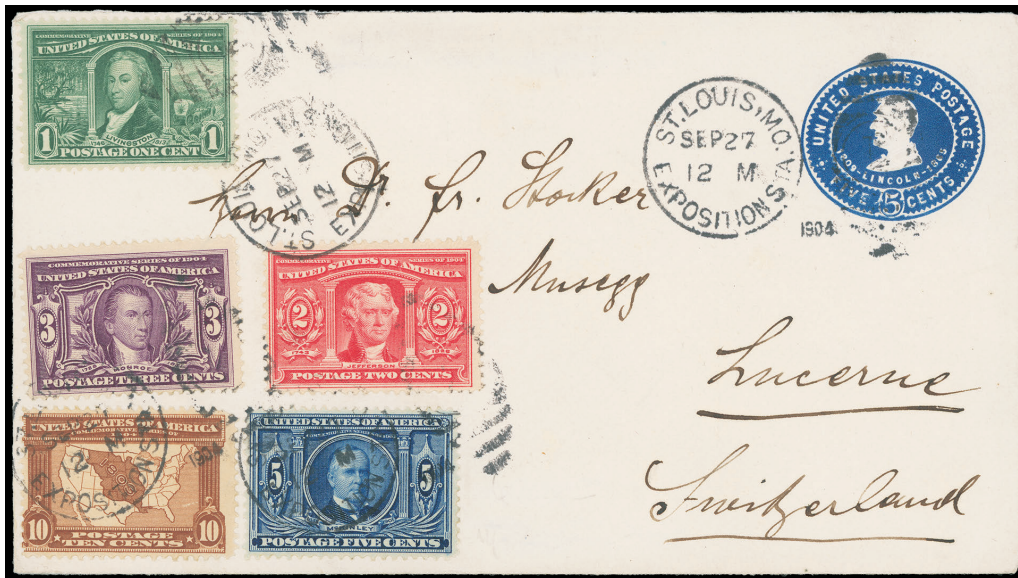 COMMEMORATIVE SERIES OF 1904
UNITED STATES OF AMERICA
1
1
1746 LIVINGSTON 1813
POSTAGE ONE CENT
ST. LOUIS, MO.
SEP 27
12 M
EXPOSITION STA.
1904
UNITED STATES POSTAGE
1809-LINCOLN-1865
FIVE 5 CENTS
ST. LOUIS
SEP 27
12 M
EXPOSITION STA.
Herrn Dr. Fr. Stocker
Musegg
Lucerne
Switzerland
COMMEMORATIVE SERIES OF 1904
UNITED STATES OF AMERICA
3
3
MONROE
POSTAGE THREE CENTS
COMMEMORATIVE SERIES OF 1904
UNITED STATES OF AMERICA
2
2
1743
1826
JEFFERSON
POSTAGE TWO CENTS
UNITED STATES OF AMERICA
1803
10
10
POSTAGE
TEN CENTS
12 M
EXPOS
ON STA
1904
UNITED STATES OF AMERICA
COMMEMORATIVE SERIES OF 1904
5
5
MCKINLEY
POSTAGE FIVE CENTS